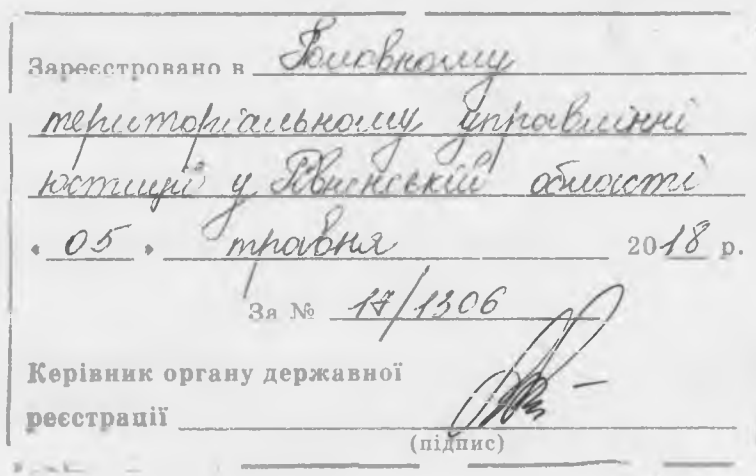 Зареєстровано в Головному
територіальному управлінні
юстиції у Рівненській області
"05" травня 2018 р.
За № 17/1306
Керівник органу державної
реєстрації
(підпис)